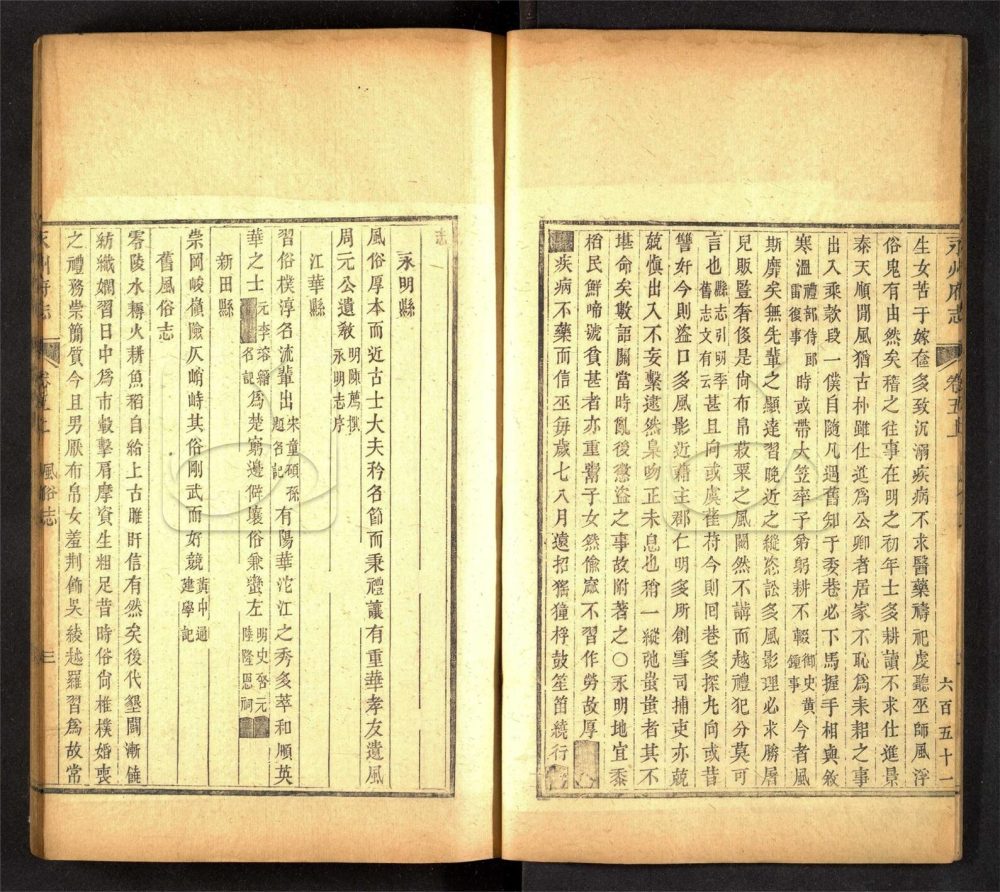 永州府志 卷五上 六百五十一
生女苦于嫁奩多致沉溺疾病不求醫藥禱祀虔聽巫師風浮
俗鬼有由然矣稽之往事在明之初年士多耕讀不求仕進景
泰天順間風猶古朴雖仕進爲公卿者居家不恥爲耒耜之事
出入乘欵段一僕自隨凡遇舊知于委巷必下馬握手相與敘
寒溫禮部侍郎雷復事時或帶大笠率子弟躬耕不輟御史黃鐘事今者風
斯靡矣無先輩之顯達習晚近之縱恣訟多風影理必求勝屠
兒販豎奢侈是尙布帛菽粟之風闃然不講而越禮犯分莫可
言也縣志引明季舊志文有云甚且向或虞萑苻今則囘巷多探丸向或昔
讐好今則盜口多風影近藉主郡仁明多所創雪司捕吏亦兢
兢愼出入不妄繫逮然梟吻正未息也稍一縱弛蚩蚩者其不
堪命矣數語關當時亂後懲盜之事故附著之〇永明地宜黍
稻民鮮啼號貧甚者亦重鬻子女然偷窳不習作勞故厚
疾病不藥而信巫每歲七八月遠招猺獞桴鼓笙笛繞行
志
永明縣
風俗厚本而近古士大夫矜名節而秉禮讓有重華孝友遺風
周元公遺敎明陳薦撰永明志序
江華縣
習俗樸淳名流輩出宋童碩孫題名記有陽華沱江之秀多萃和順英
華之士元李瑢籍名記爲楚窮邊僻壤俗兼蠻左明史啓元陸隆恩祠
新田縣
崇岡峻嶺險仄峭峙其俗剛武而好競黃中通建寧記
舊風俗志
零陵水耨火耕魚稻自給上古睢盱信有然矣後代墾闢漸僆
紡織嫻習日中爲市轂擊肩摩資生粗足昔時俗尙椎樸婚喪
之禮務崇簡質今且男厭布帛女羞荆飾吳綾越羅習爲故常
永州府志 卷五上 風俗志 三